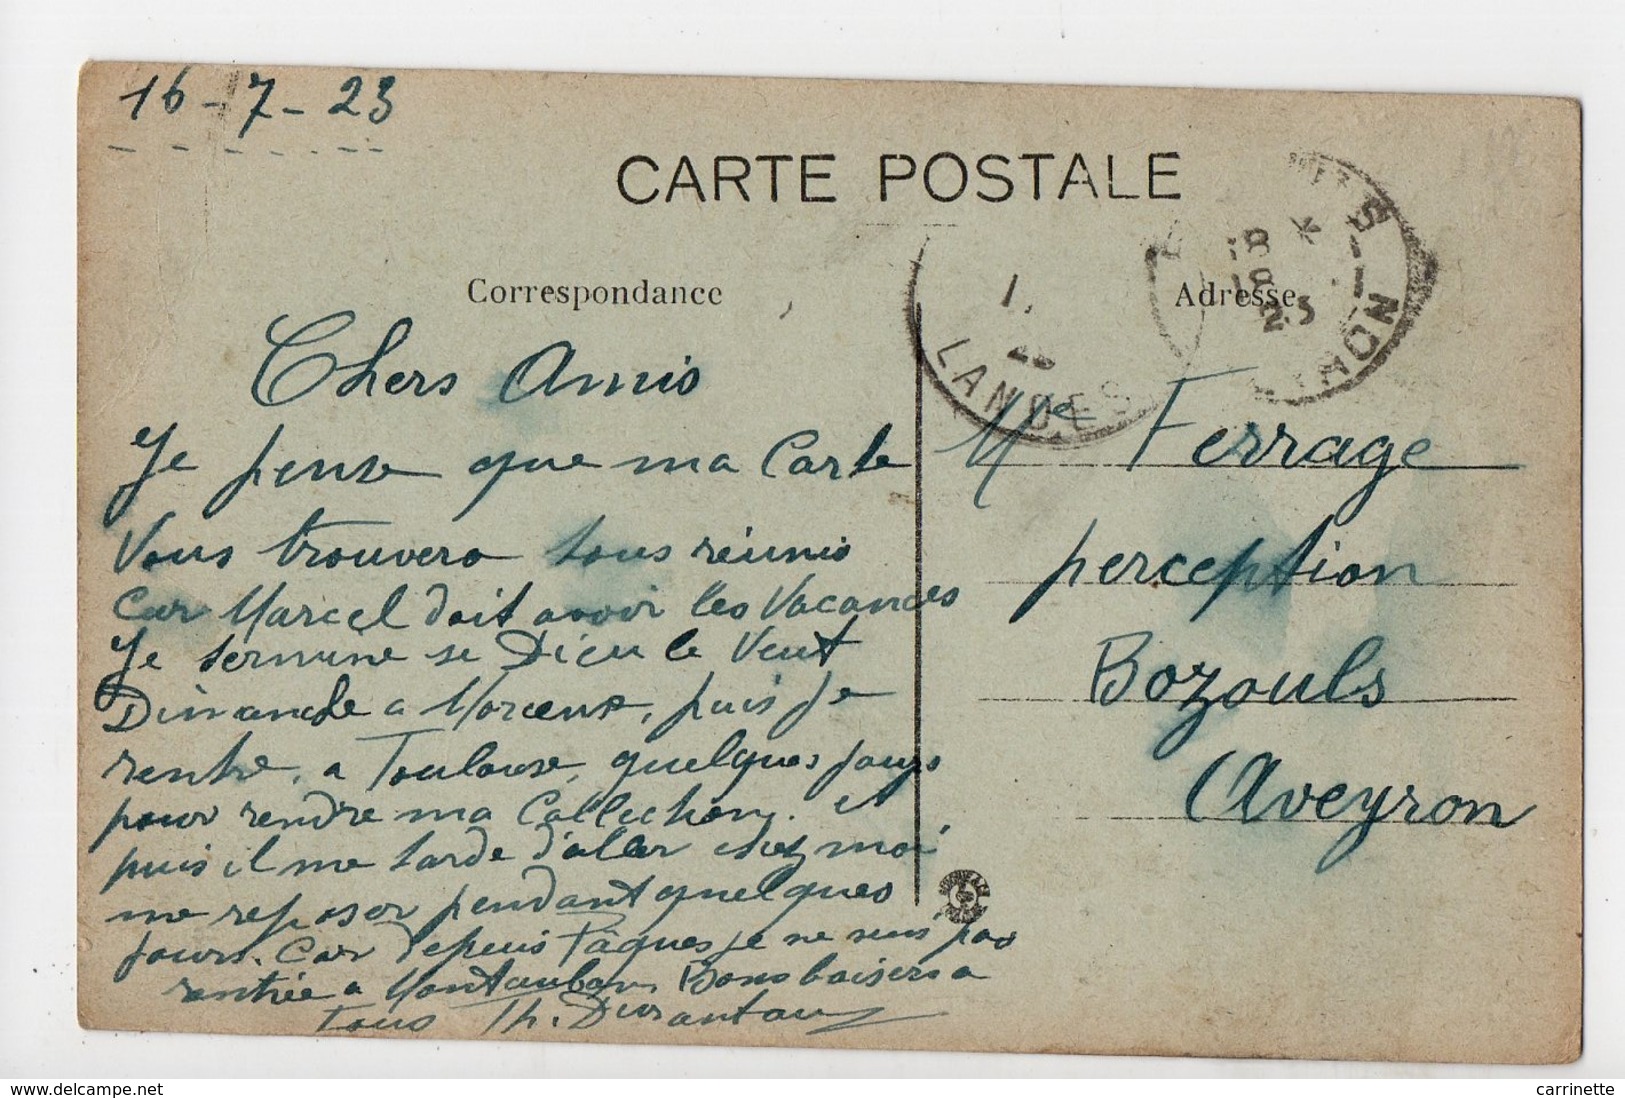 16-7-23
CARTE POSTALE
Correspondance
Adresse
18 *
18
23
LANDES
Chers Amis
Je pense que ma Carte
Vous trouvera tous réunis
Car Marcel doit avoir les Vacances
Je termine se Dieu le Veut
Dimanche a Morcenx, puis je
rentre, a Toulouse, quelques jours
pour rendre ma Collection. et
puis il me tarde d'aller chez moi
me reposer pendant quelques
jours. Car depuis Pâques je ne suis pas
rentrée a Montauban, Bons baisers a
Tous Th. Durantau
Me Ferrage
perception
Bozouls
Aveyron
www.delcampe.net
carrinette